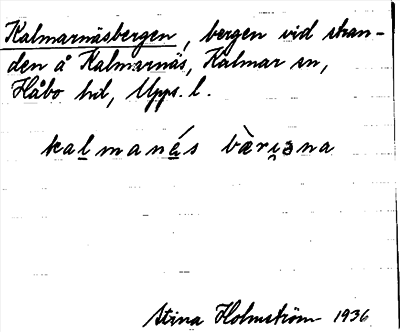 Kalmarnäsbergen, bergen vid stran-
den å Kalmarnäs, Kalmar sn,
Håbo hd, Upps. l.
kalmanés bærɩ̯ɜna
Stina Holmström 1936